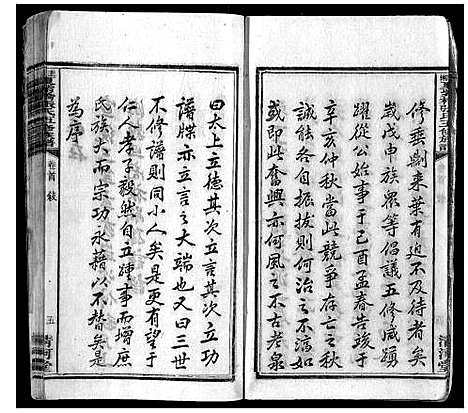 修垂劃來葉有迫不及待者矣
歲戊申族眾等倡議五修咸踴
躍從公始事于己酉孟春告竣于
辛亥仲秋當此競爭存亡之秋
誠能各自振拔則何治之不湻如
或即此奮興亦何風之不古老泉
曰太上立德其次立言其次立功
譜牒亦立言之大端也又曰三世
不修譜則同小人矣是更有望于
仁人孝子毅然自立踵事而增庶
民族大而宗功永藉以不替矣是
為序
卷首 敍
五
清河堂
清河堂